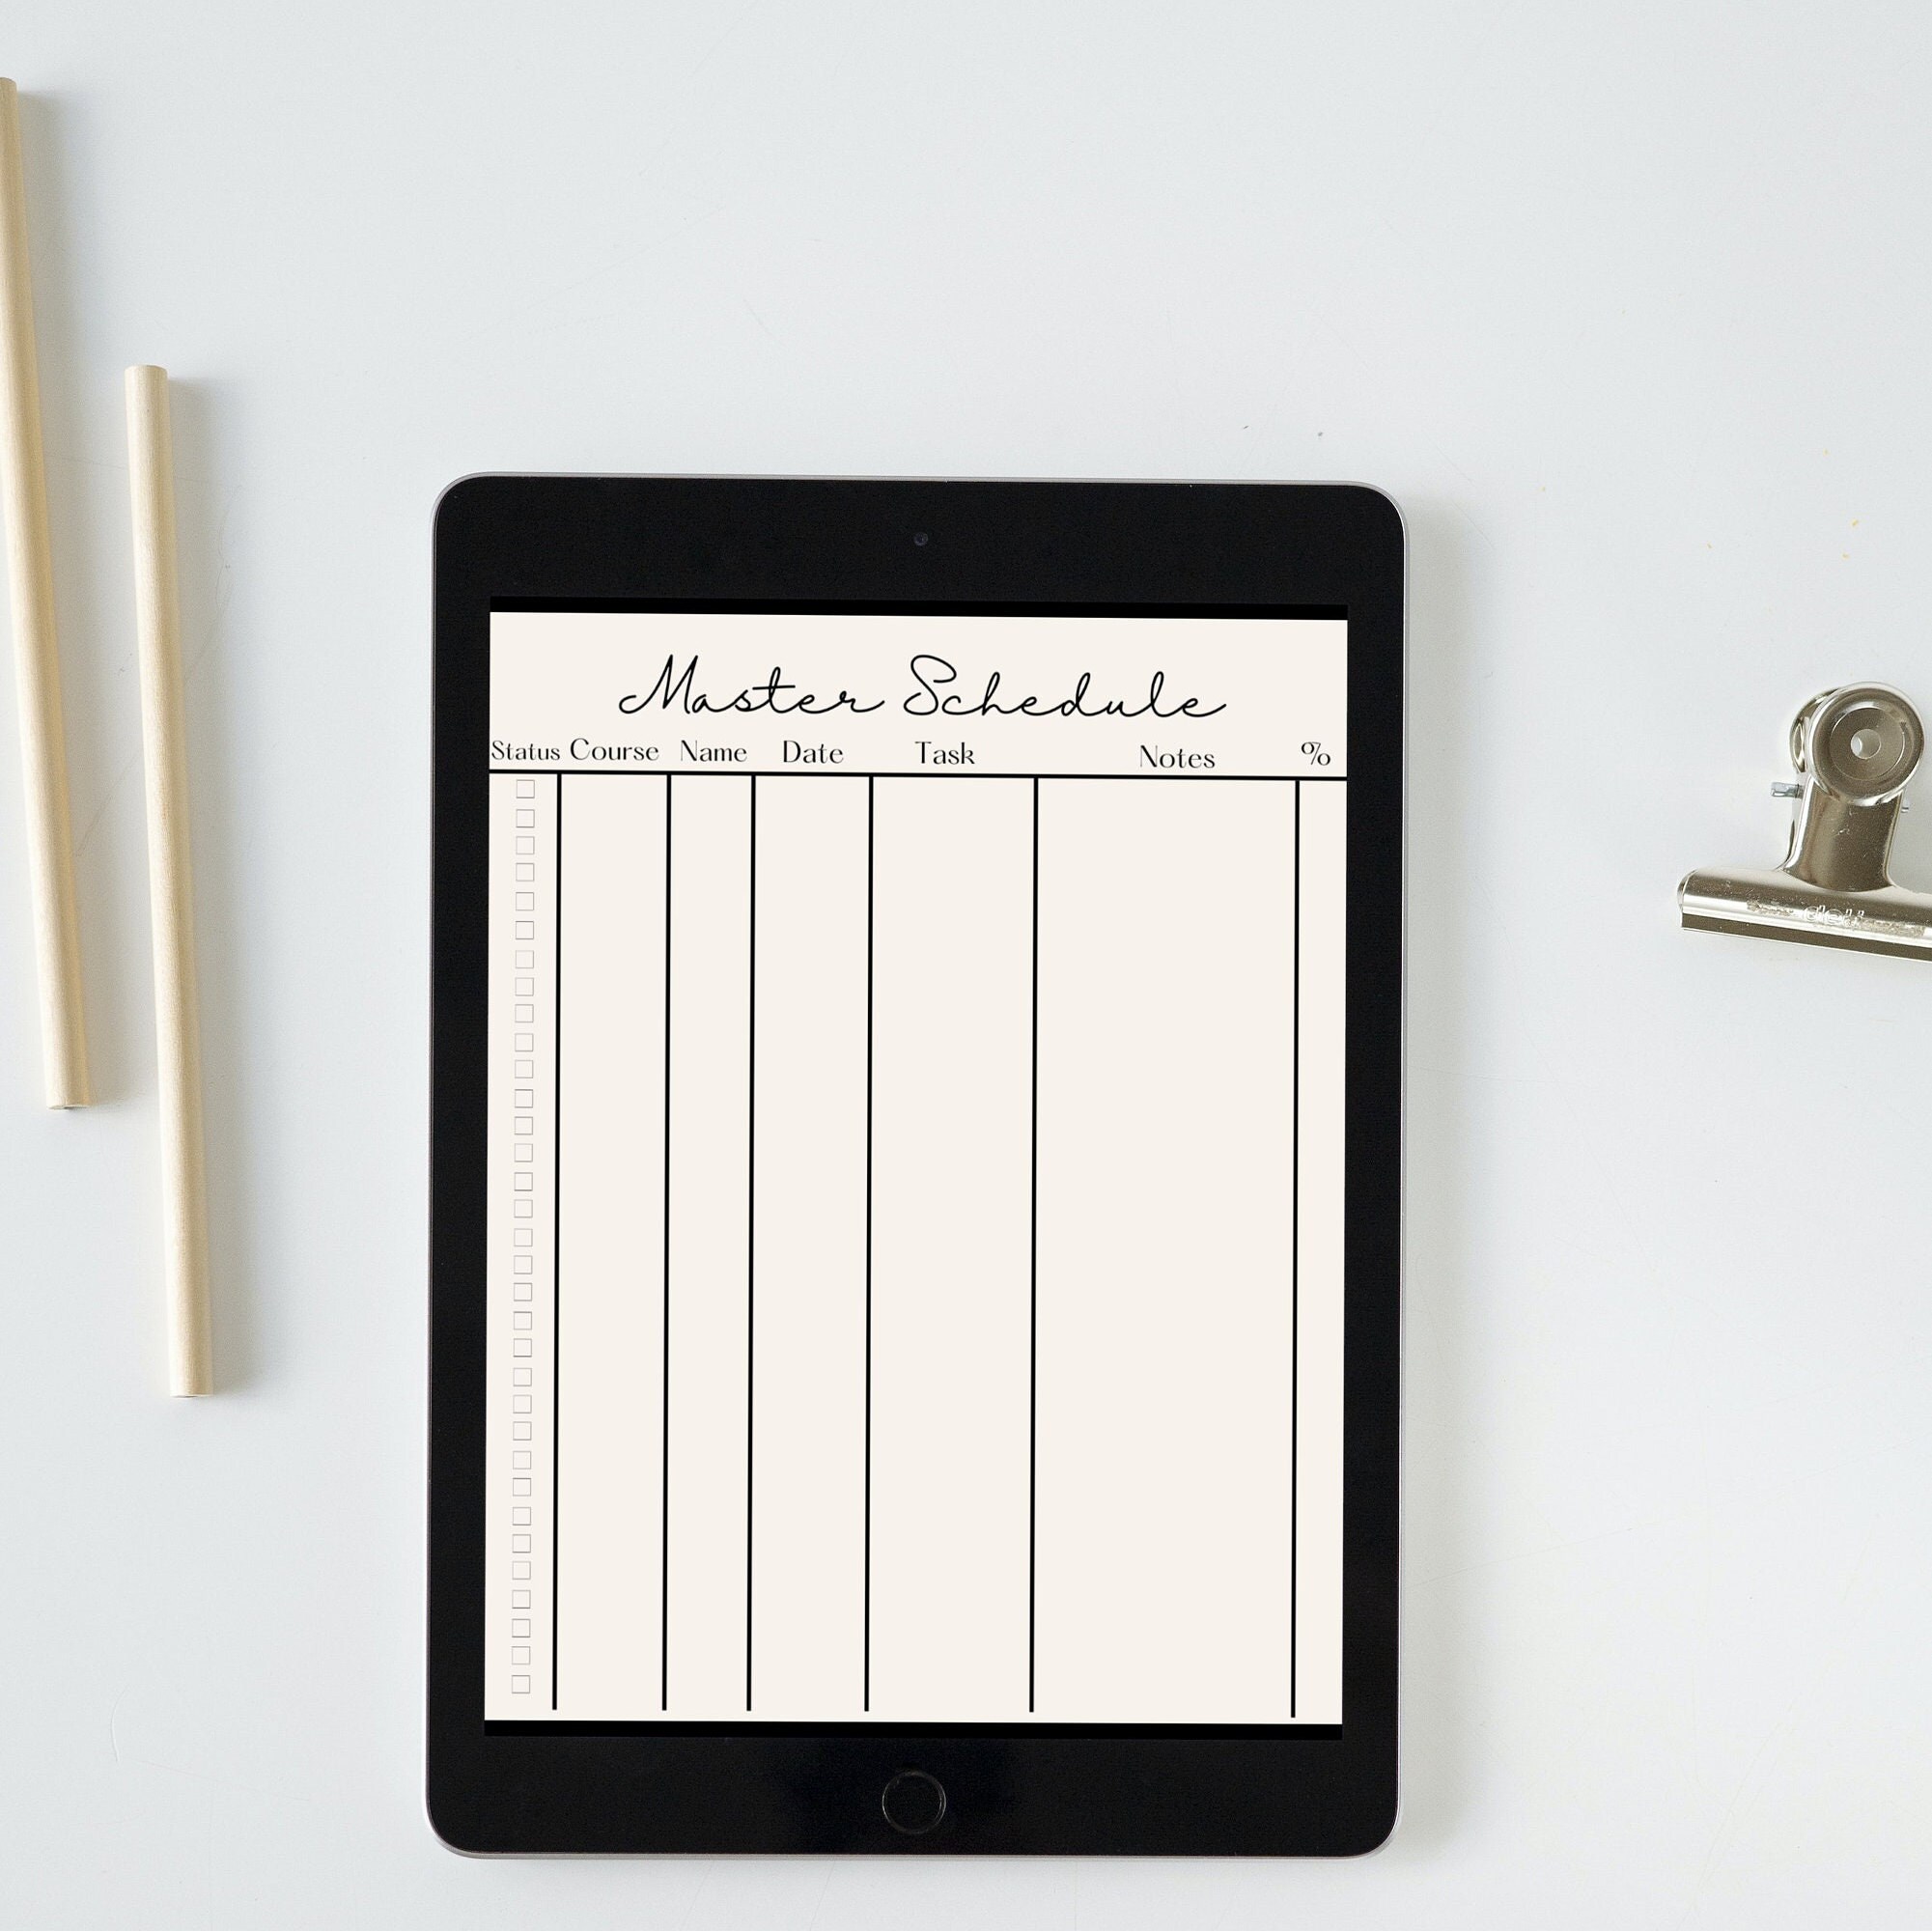 Master Schedule
Status Course Name Date Task Notes %
deli